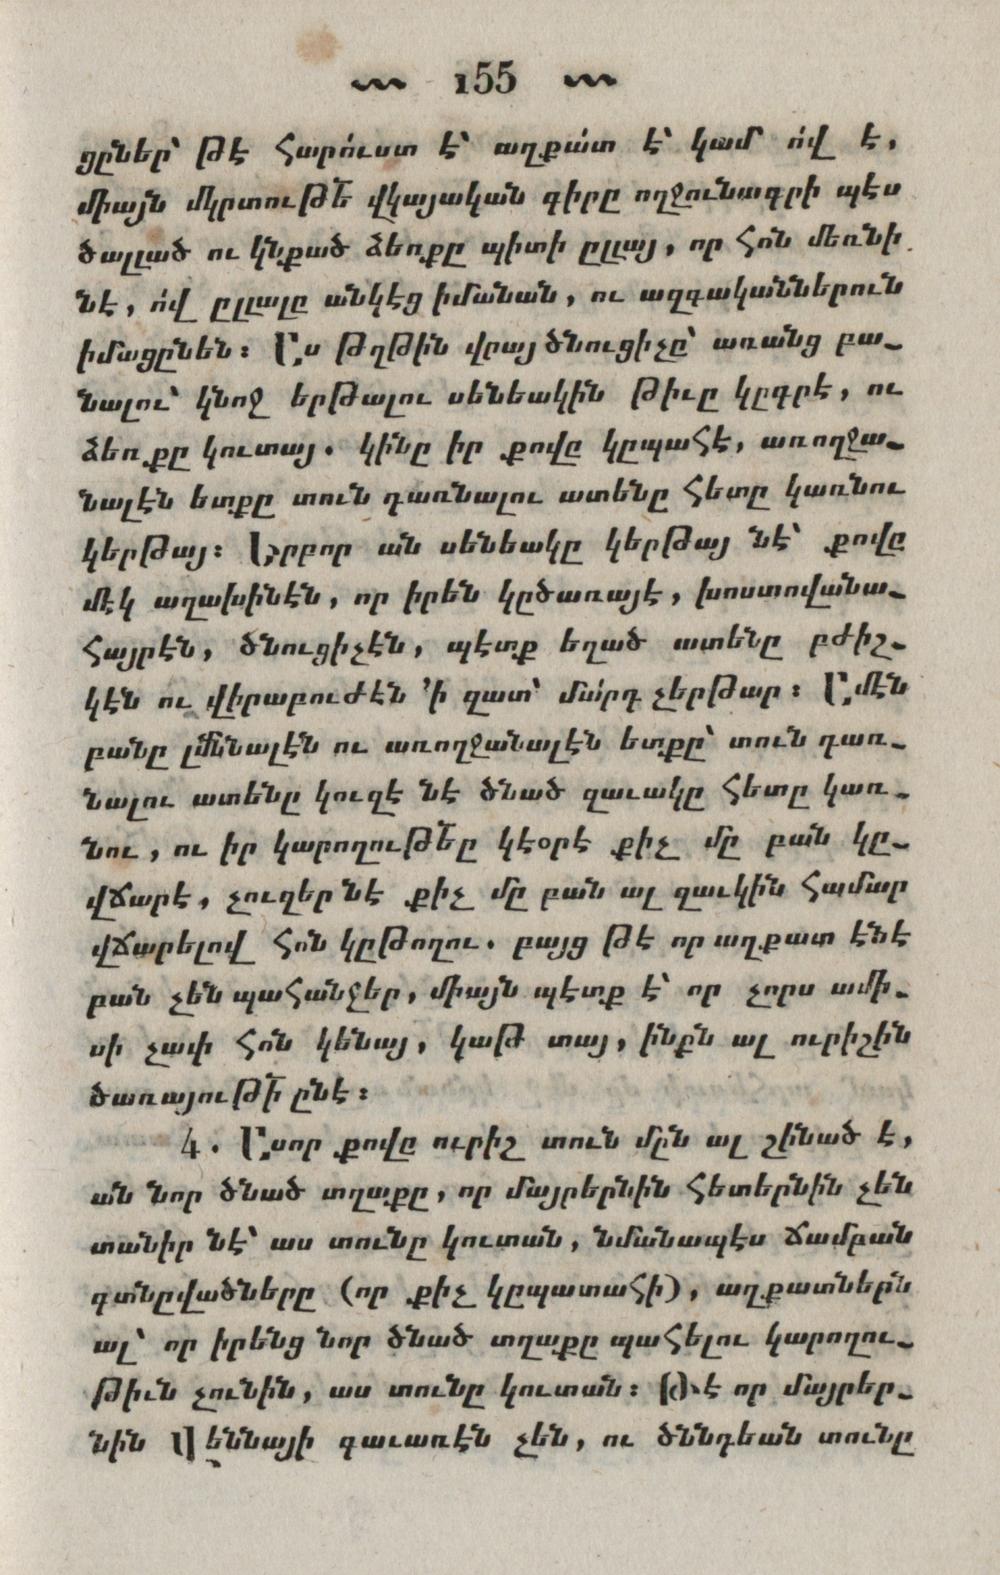 155
ցըներ՝ թէ հարո՛ւստ է՝ աղքա՛տ է՝ կամ ո՛վ է,
միայն մկրտութե՛ վկայական գիրը ողջունագրի պէս
ծալլած ու կնքած ձեռքը պիտի ըլլայ, որ հոն մեռնի
նէ, ո՛վ ըլլալը անկէց իմանան, ու ազգականներուն
իմացընեն։ Աս թղթին վրայ ծնուցիչը՝ առանց բա֊
նալու՝ կնոջ երթալու սենեակին թիւը կըգրէ, ու
ձեռքը կուտայ. կինը իր քովը կըպահէ, առողջա֊
նալէն ետքը տուն դառնալու ատենը հետը կառնու
կերթայ։ Երբոր ան սենեակը կերթայ նէ՝ քովը
մէկ աղախինէն, որ իրեն կըծառայէ, խոստովանա֊
հայրէն, ծնուցիչէն, պէտք եղած ատենը բժիշ֊
կէն ու վիրաբուժէն ՚ի զատ՝ մա՛րդ չերթար։ Ամէն
բանը լմննալէն ու առողջանալէն ետքը՝ տուն դառ֊
նալու ատենը կուզէ նէ ծնած զաւակը հետը կառ֊
նու, ու իր կարողութե՛ը կէօրէ քիչ մը բան կը֊
վճարէ, չուզեր նէ քիչ մը բան ալ զաւկին համար
վճարելով հոն կըթողու. բայց թէ որ աղքատ էնէ
բան չեն պահանջեր, միայն պէտք է՝ որ չորս ամի֊
սի չափ հոն կենայ, կաթ տայ, ինքն ալ ուրիշին
ծառայութի՛ ընէ։
4. Ասոր քովը ուրիշ տուն մըն ալ շինած է,
ան նոր ծնած տղաքը, որ մայրերնին հետերնին չեն
տանիր նէ՝ աս տունը կուտան, նմանապէս ճամբան
գտնըվածները (որ քիչ կըպատահի), աղքատներն
ալ՝ որ իրենց նոր ծնած տղաքը պահելու կարողու֊
թիւն չունին, աս տունը կուտան։ Թէ որ մայրեր֊
նին Վեննայի գաւառէն չեն, ու ծննդեան տունը